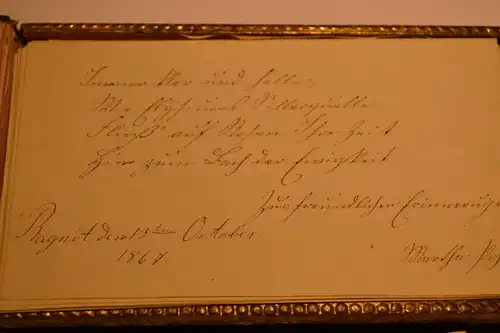 Immer klar und helle,
Wie Elysiums Silberquelle
Fließ' auf Rosen Ihre Zeit
Hin zum Bach der Ewigkeit
Zur freundlichen Erinnerung
Ragnit den 13ten October
1867.
Martha